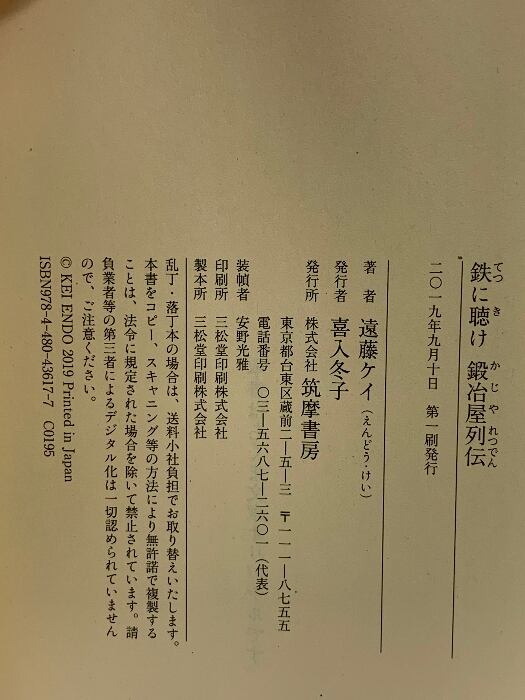 鉄に聴け 鍛冶屋列伝
てつ き かじや れつでん
二〇一九年九月十日 第一刷発行
著者 遠藤ケイ(えんどう・けい)
発行者 喜入冬子
発行所 株式会社 筑摩書房
東京都台東区蔵前二―五―三 〒一一一―八七五五
電話番号 〇三―五六八七―二六〇一(代表)
装幀者 安野光雅
印刷所 三松堂印刷株式会社
製本所 三松堂印刷株式会社
乱丁・落丁本の場合は、送料小社負担でお取り替えいたします。
本書をコピー、スキャニング等の方法により無許諾で複製する
ことは、法令に規定された場合を除いて禁止されています。請
負業者等の第三者によるデジタル化は一切認められていません
ので、ご注意ください。
© KEI ENDO 2019 Printed in Japan
ISBN978-4-480-43617-7 C0195